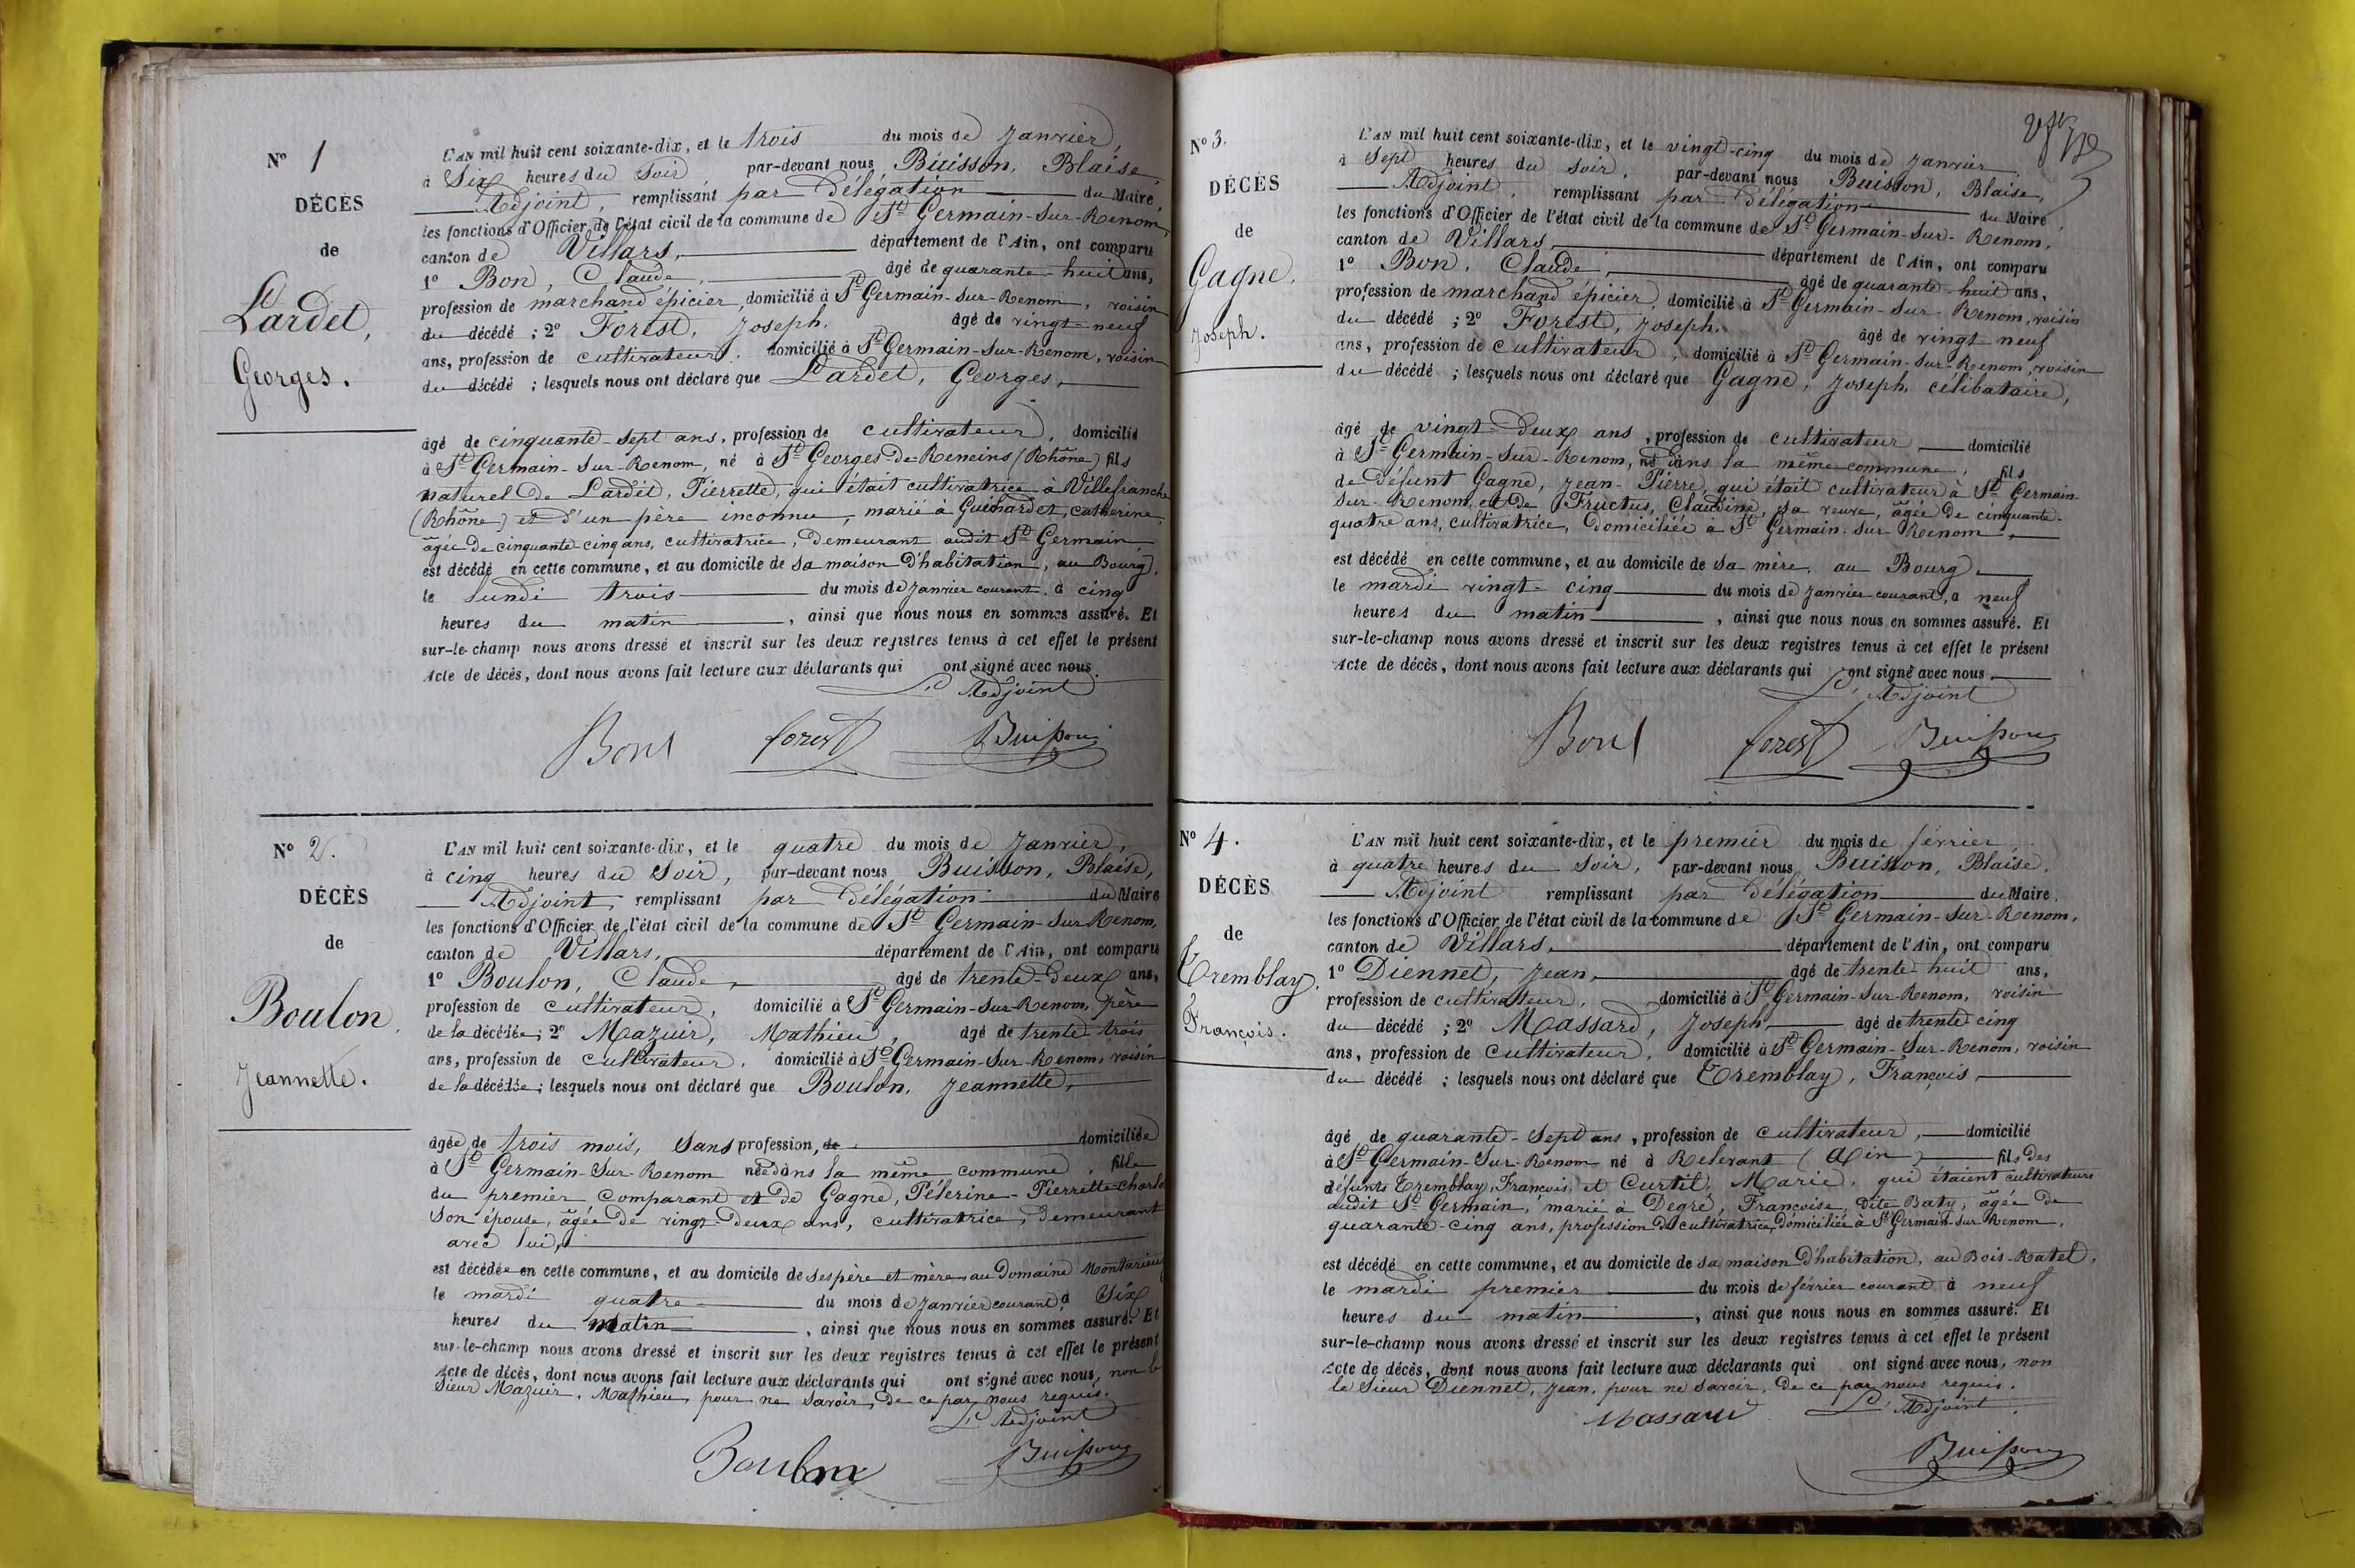 N° 1
DÉCÈS
de
Lardet,
Georges.
L'AN mil huit cent soixante-dix, et le trois du mois de Janvier,
à Six heures du Soir, par-devant nous Buisson, Blaise,
Adjoint, remplissant par délégation du Maire,
les fonctions d'Officier de l'état civil de la commune de St Germain-Sur-Renom,
canton de Villars, département de l'Ain, ont comparu
1° Bon, Claude, âgé de quarante-huit ans,
profession de marchand épicier, domicilié à St Germain-Sur-Renom, voisin
du décédé ; 2° Forest, Joseph, âgé de vingt-neuf
ans, profession de cultivateur, domicilié à St Germain-Sur-Renom, voisin
du décédé ; lesquels nous ont déclaré que Lardet, Georges,
âgé de cinquante-sept ans, profession de cultivateur, domicilié
à St Germain-Sur-Renom, né à St Georges-de-Reneins (Rhône) fils
naturel de Lardet, Pierrette, qui était cultivatrice à Villefranche
(Rhône) et d'un père inconnu, marié à Guénardet, Catherine,
âgée de cinquante-cinq ans, cultivatrice, demeurant audit St Germain,
est décédé en cette commune, et au domicile de sa maison d'habitation, au Bourg,
le lundi trois du mois de Janvier courant, à cinq
heures du matin, ainsi que nous nous en sommes assuré. Et
sur-le-champ nous avons dressé et inscrit sur les deux registres tenus à cet effet le présent
Acte de décès, dont nous avons fait lecture aux déclarants qui ont signé avec nous.
L'Adjoint
Bon forest Buisson
N° 2.
DÉCÈS
de
Boulon,
Jeannette.
L'AN mil huit cent soixante-dix, et le quatre du mois de Janvier,
à cinq heures du Soir, par-devant nous Buisson, Blaise,
Adjoint, remplissant par délégation du Maire
les fonctions d'Officier de l'état civil de la commune de St Germain-Sur-Renom,
canton de Villars, département de l'Ain, ont comparu
1° Boulon, Claude, âgé de trente-deux ans,
profession de cultivateur, domicilié à St Germain-Sur-Renom, père
de la décédée ; 2° Mazuir, Mathieu, âgé de trente trois
ans, profession de cultivateur, domicilié à St Germain-Sur-Renom, voisin
de la décédée ; lesquels nous ont déclaré que Boulon, Jeannette,
âgée de trois mois, Sans profession, de domiciliée
à St Germain-Sur-Renom née dans la même commune, fille
du premier comparant et de Gagne, Pélerine-Pierrette-Charlo
Son épouse, âgée de vingt-deux ans, cultivatrice, demeurant
avec lui,
est décédée en cette commune, et au domicile de ses père et mère, au domaine Montarieux
le mardi quatre du mois de Janvier courant, à Six
heures du matin, ainsi que nous nous en sommes assuré. Et
sur-le-champ nous avons dressé et inscrit sur les deux registres tenus à cet effet le présent
Acte de décès, dont nous avons fait lecture aux déclarants qui ont signé avec nous, non le
Sieur Mazuir, Mathieu, pour ne Savoir, de ce par nous requis.
L'Adjoint
Boulon Buisson
N° 3.
DÉCÈS
de
Gagne,
Joseph.
L'AN mil huit cent soixante-dix, et le vingt-cinq du mois de Janvier,
à Sept heures du Soir, par-devant nous Buisson, Blaise,
Adjoint, remplissant par délégation du Maire,
les fonctions d'Officier de l'état civil de la commune de St Germain-Sur-Renom,
canton de Villars, département de l'Ain, ont comparu
1° Bon, Claude, âgé de quarante-huit ans,
profession de marchand épicier, domicilié à St Germain-Sur-Renom, voisin
du décédé ; 2° Forest, Joseph, âgé de vingt neuf
ans, profession de cultivateur, domicilié à St Germain-Sur-Renom, voisin
du décédé ; lesquels nous ont déclaré que Gagne, Joseph, célibataire,
âgé de vingt-deux ans, profession de cultivateur, domicilié
à St Germain-Sur-Renom, né dans la même commune, fils
de défunt Gagne, Jean-Pierre, qui était cultivateur à St Germain-
Sur-Renom, et de Fructus, Claudine, sa veuve, âgée de cinquante-
quatre ans, cultivatrice, domiciliée à St Germain-Sur-Renom,
est décédé en cette commune, et au domicile de sa mère, au Bourg,
le mardi vingt-cinq du mois de Janvier courant, à neuf
heures du matin, ainsi que nous nous en sommes assuré. Et
sur-le-champ nous avons dressé et inscrit sur les deux registres tenus à cet effet le présent
Acte de décès, dont nous avons fait lecture aux déclarants qui ont signé avec nous.
L'Adjoint
Bon forest Buisson
N° 4.
DÉCÈS
de
Tremblay,
François.
L'AN mil huit cent soixante-dix, et le premier du mois de février,
à quatre heures du Soir, par-devant nous Buisson, Blaise,
Adjoint remplissant par délégation du Maire,
les fonctions d'Officier de l'état civil de la commune de St Germain-Sur-Renom,
canton de Villars, département de l'Ain, ont comparu
1° Diennet, Jean, âgé de trente-huit ans,
profession de cultivateur, domicilié à St Germain-Sur-Renom, voisin
du décédé ; 2° Massard, Joseph âgé de trente cinq
ans, profession de cultivateur, domicilié à St Germain-Sur-Renom, voisin
du décédé ; lesquels nous ont déclaré que Tremblay, François,
âgé de quarante-Sept ans, profession de cultivateur, domicilié
à St Germain-Sur-Renom né à Relevant (Ain) fils des
défunts Tremblay, François, et Curtil, Marie, qui étaient cultivateurs
audit St Germain, marié à Degré, Françoise, dite Baty, âgée de
quarante-cinq ans, profession de cultivatrice, domiciliée à St Germain-Sur-Renom,
est décédé en cette commune, et au domicile de sa maison d'habitation, au Bois-Ratel,
le mardi premier du mois de février courant à neuf
heures du matin, ainsi que nous nous en sommes assuré. Et
sur-le-champ nous avons dressé et inscrit sur les deux registres tenus à cet effet le présent
Acte de décès, dont nous avons fait lecture aux déclarants qui ont signé avec nous, non
le Sieur Diennet, Jean, pour ne Savoir, de ce par nous requis.
L'Adjoint
Massard
Buisson